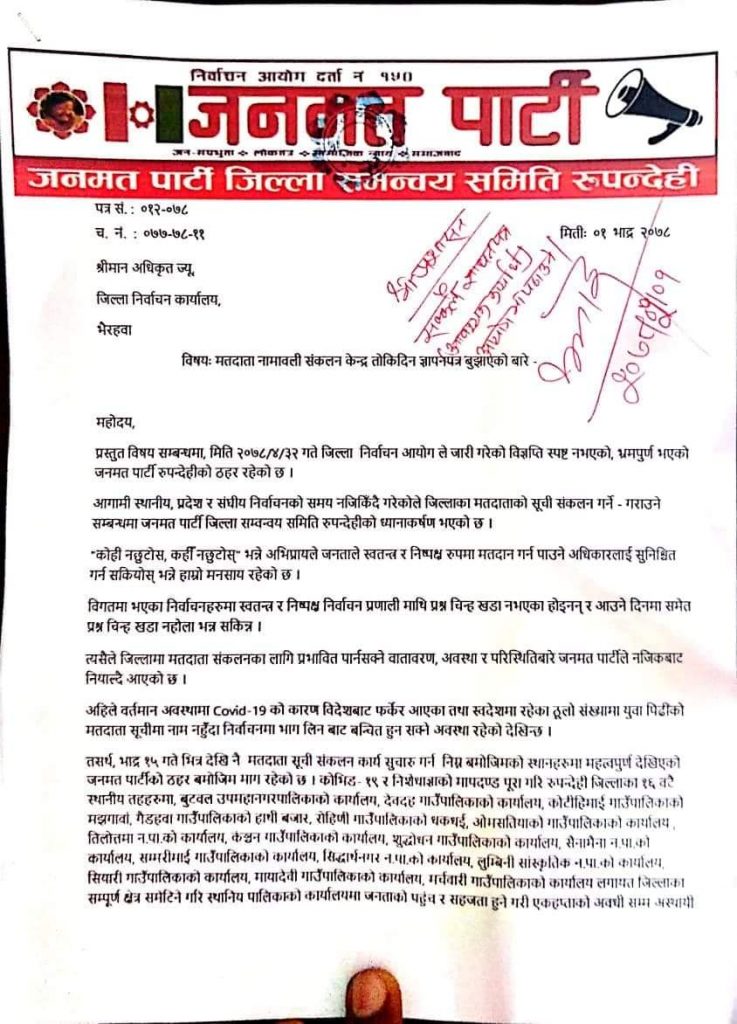 निर्वाचन आयोग दर्ता नं १५०
जनमत पार्टी
लोकतन्त्र सामाजिक न्याय समाजवाद
जनमत पार्टी जिल्ला समन्वय समिति रुपन्देही
पत्र सं. : ०१२-०७८
च. नं. : ०७७-७८-११
मितीः ०१ भाद्र २०७८
श्रीमान अधिकृत ज्यू,
जिल्ला निर्वाचन कार्यालय,
भैरहवा
विषयः मतदाता नामावली संकलन केन्द्र तोकिदिन ज्ञापनपत्र बुझाएको बारे -
महोदय,
प्रस्तुत विषय सम्बन्धमा, मिति २०७८/४/३२ गते जिल्ला निर्वाचन आयोग ले जारी गरेको विज्ञप्ति स्पष्ट नभएको, भ्रमपुर्ण भएको
जनमत पार्टी रुपन्देहीको ठहर रहेको छ ।
आगामी स्थानीय, प्रदेश र संघीय निर्वाचनको समय नजिकिँदै गरेकोले जिल्लाका मतदाताको सूची संकलन गर्ने - गराउने
सम्बन्धमा जनमत पार्टी जिल्ला सम्वन्वय समिति रुपन्देहीको ध्यानाकर्षण भएको छ ।
"कोही नछुटोस, कहीँ नछुटोस्" भन्ने अभिप्रायले जनताले स्वतन्त्र र निष्पक्ष रुपमा मतदान गर्न पाउने अधिकारलाई सुनिश्चित
गर्न सकियोस् भन्ने हाम्रो मनसाय रहेको छ ।
विगतमा भएका निर्वाचनहरुमा स्वतन्त्र र निष्पक्ष निर्वाचन प्रणाली माथि प्रश्न चिन्ह खडा नभएका होइनन् र आउने दिनमा समेत
प्रश्न चिन्ह खडा नहोला भन्न सकिन्न ।
त्यसैले जिल्लामा मतदाता संकलनका लागि प्रभावित पार्नसक्ने वातावरण, अवस्था र परिस्थितिबारे जनमत पार्टीले नजिकबाट
नियाल्दै आएको छ ।
अहिले वर्तमान अवस्थामा Covid-19 को कारण विदेशबाट फर्केर आएका तथा स्वदेशमा रहेका ठूलो संख्यामा युवा पिढीको
मतदाता सूचीमा नाम नहुँदा निर्वाचनमा भाग लिन बाट बन्चित हुन सक्ने अवस्था रहेको देखिन्छ ।
तसर्थ, भाद्र १५ गते भित्र देखि नै मतदाता सूची संकलन कार्य सुचारु गर्न निम्न बमोजिमको स्थानहरुमा महत्वपुर्ण देखिएको
जनमत पार्टीको ठहर बमोजिम माग रहेको छ । कोभिड- १९ र निशेधाज्ञाको मापदण्ड पूरा गरि रुपन्देही जिल्लाका १६ वटै
स्थानीय तहहरुमा, बुटवल उपमहानगरपालिकाको कार्यालय, देवदह गाउँपालिकाको कार्यालय, कोटीहिमाई गाउँपालिकाको
मझगावां, गैडहवा गाउँपालिकाको हाथी बजार, रोहिणी गाउँपालिकाको धकधई, ओमसतियाको गाउँपालिकाको कार्यालय ,
तिलोतमा न.पा.को कार्यालय, कंञ्चन गाउँपालिकाको कार्यालय, शुद्धोधन गाउँपालिकाको कार्यालय, सैनामैना न.पा.को
कार्यालय, सम्मरीमाई गाउँपालिकाको कार्यालय, सिद्धार्थनगर न.पा.को कार्यालय, लुम्बिनी सांस्कृतिक न.पा.को कार्यालय,
सियारी गाउँपालिकाको कार्यालय, मायादेवी गाउँपालिकाको कार्यालय, मर्चवारी गाउँपालिकाको कार्यालय लगायत जिल्लाका
सम्पूर्ण क्षेत्र समेटिने गरि स्थानिय पालिकाको कार्यालयमा जनताको पहुंच र सहजता हुने गरी एकहप्ताको अवधी सम्म अस्थायी